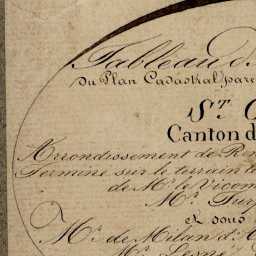 Tableau d
du Plan Cadastral parc
St. 
Canton d
Arrondissement de Ren
Terminé sur le terrain l
de Mr. le Vicom
Mr.
et sous
Mr. de Milan d'
Mr. Lesné